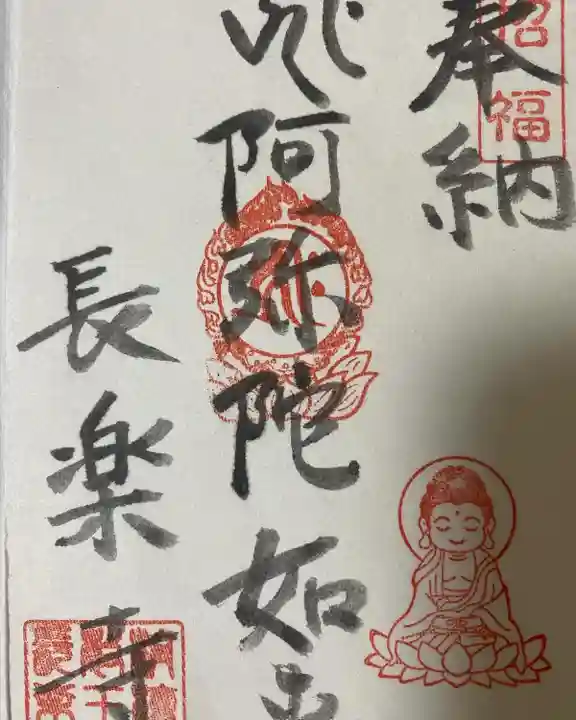 奉納
招福
阿弥陀如
長楽寺